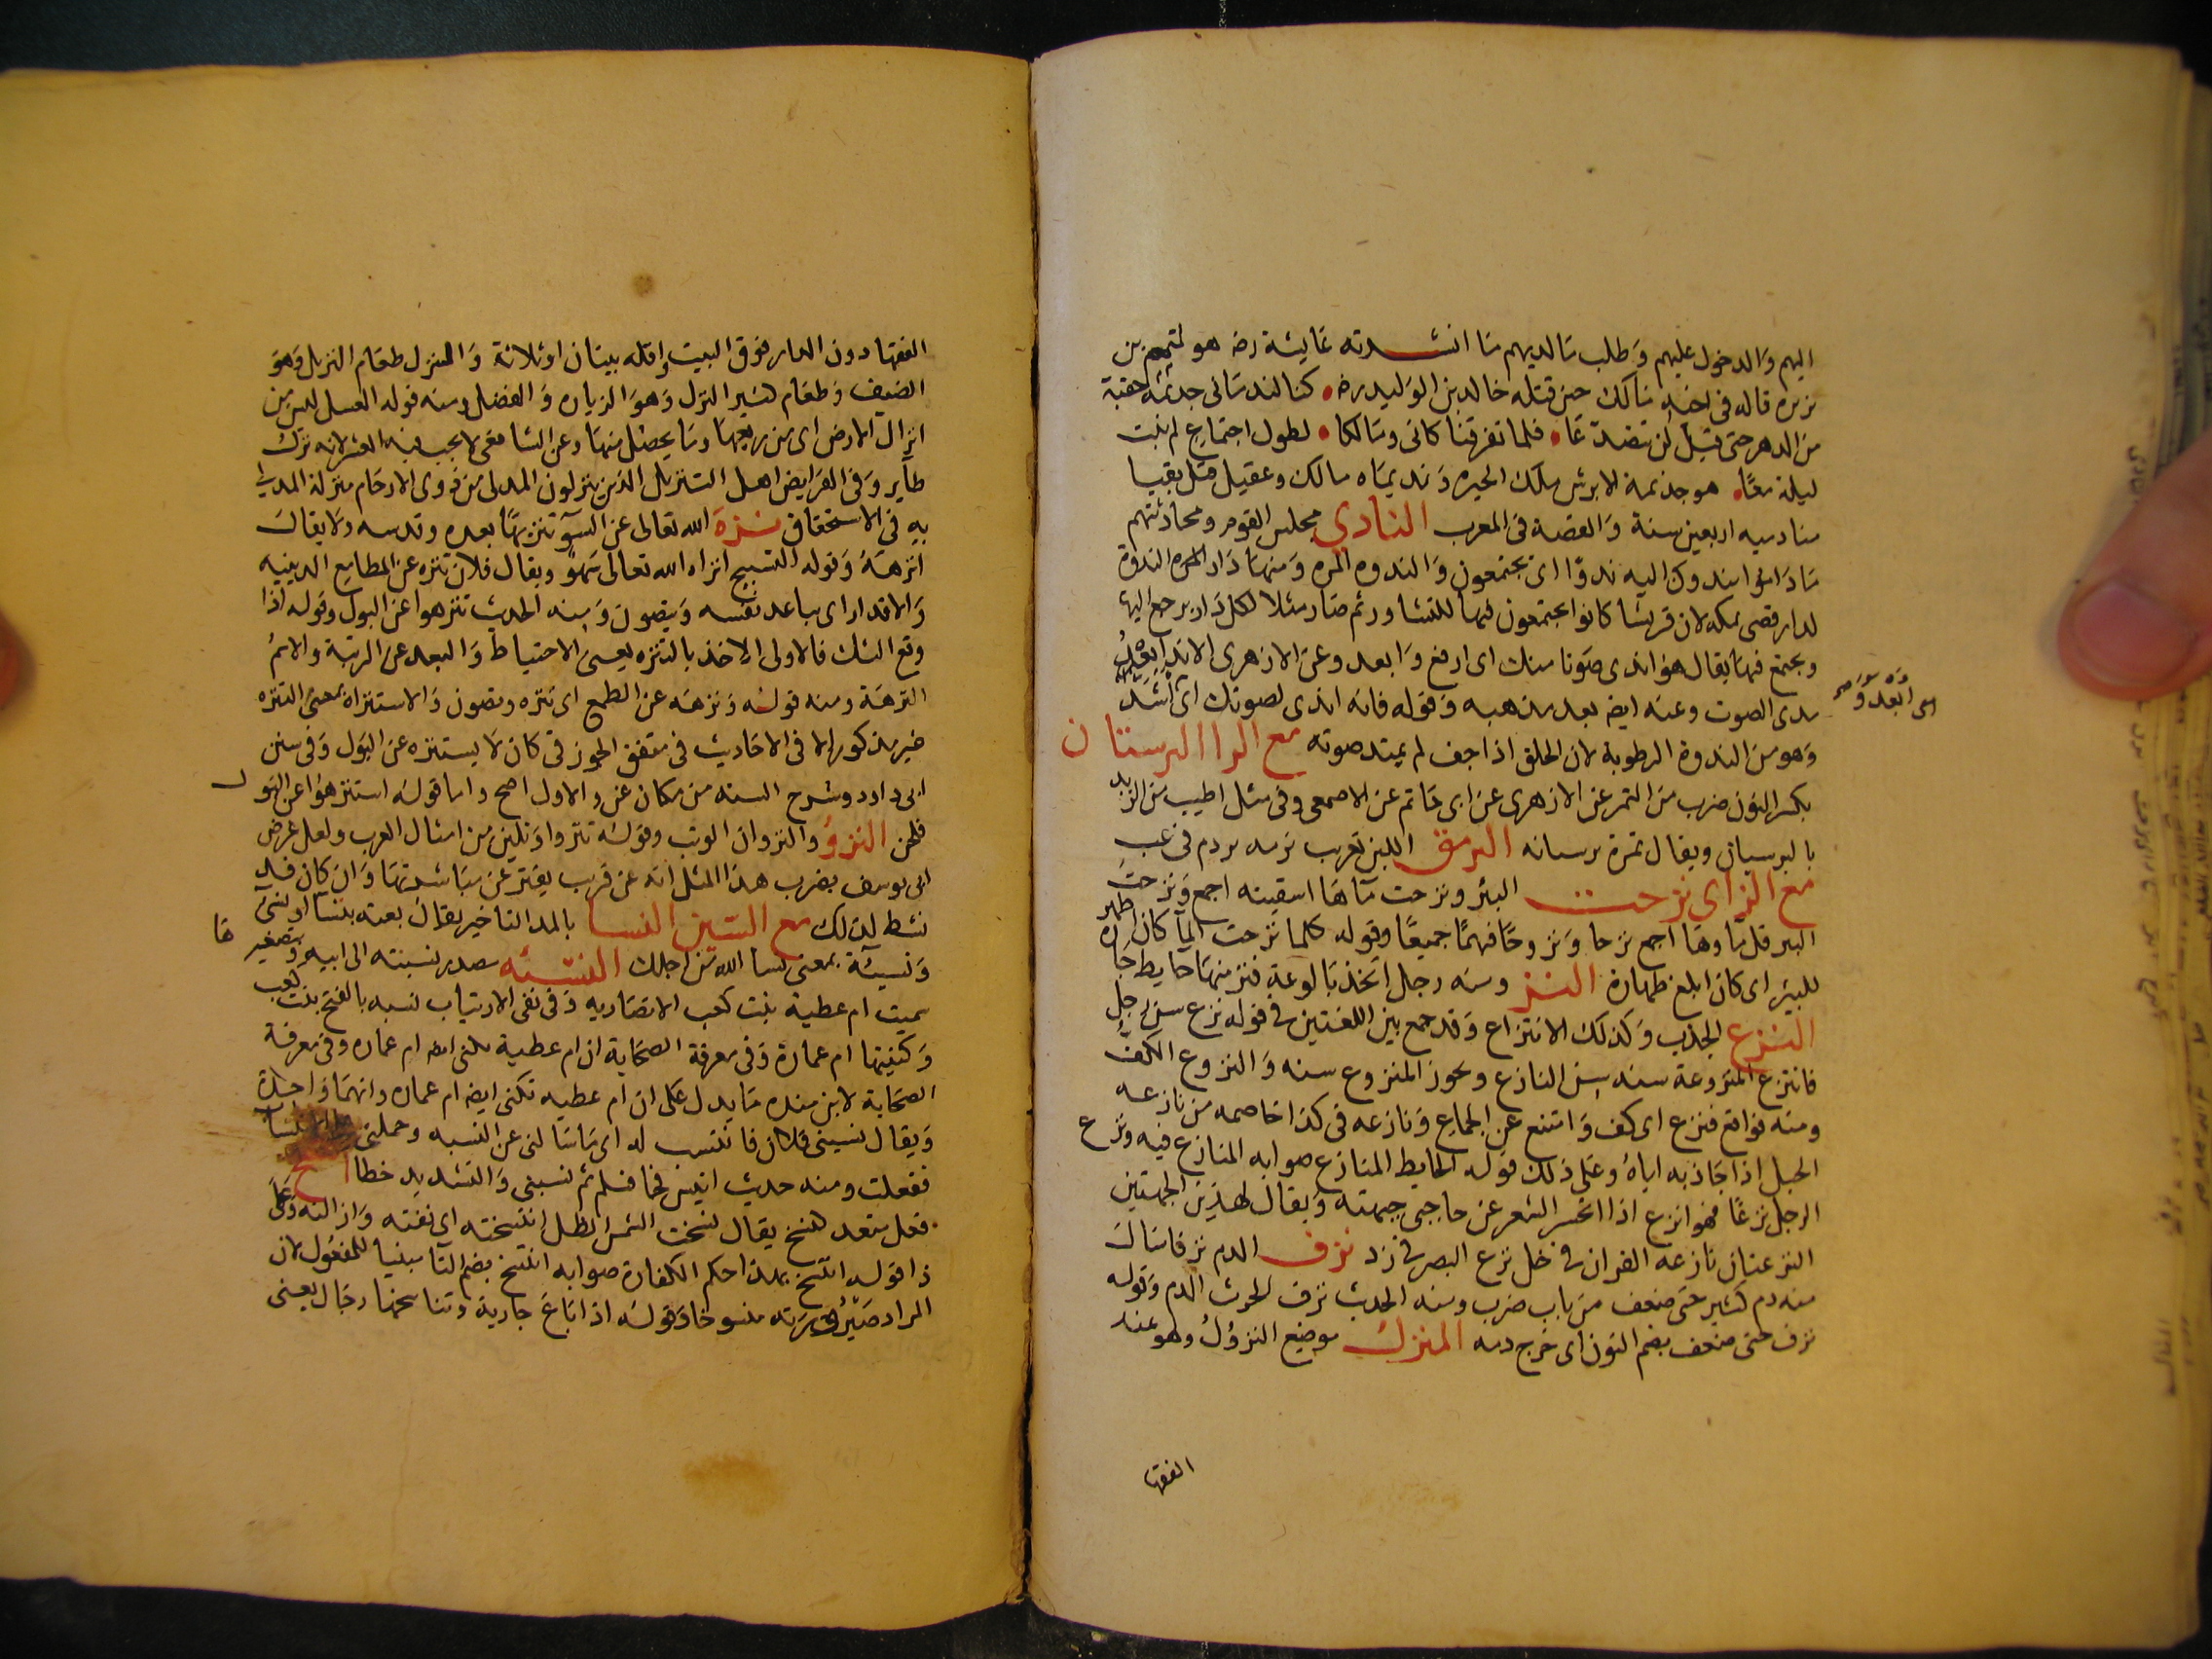 اليهم والدخول عليهم وطلب ما لديهم ما انشدته عايشة رضه هو لتمم بن
نويره قاله في اخيه مالك حين قتله خالد بن الوليد رضه • كنا كندماني جذيمة حقبة
من الدهر حتى قيل لن يتصدعا • فلما تفرقنا كاني ومالكا • لطول اجتماع لم نبت
ليلة معا • هو جذيمة الابرش ملك الحيره ونديماه مالك وعقيل قيل بقيا
منادميه اربعين سنة والقصة في المعرب النادي مجلس القوم ومحادثتهم
ما داموا يندون اليه ندوا اي يجتمعون والندوه المره ومنها دار الندوة
لدار قصى بمكه لان قريشا كانوا يجتمعون فيها للتشاور ثم صار مثلا لكل دار يرجع اليها
ويجتمع فيها يقال هو اندى صوتا منك اي ارفع وابعد وعن الازهري الاندا بعد
مدى الصوت وعنه ايضه بعد مذهبه وقوله فانه اندى لصوتك اي اشد
وهو من الندوة الرطوبة لان الحلق اذا جف لم يمتد صوته مع الرا النرسيان
بكسر النون ضرب من التمر عن الازهري عن ابي حاتم عن الاصمعي وفي مثل اطيب من الزبد
بالنرسيان ويقال تمرة نرسيانه النرمق اللين تعريب نرمه نردم في عب
مع الزاي نزحت البئر ونزحت ماءها استقيته اجمع ونزحت
البير قل ماوها اجمع نزحا ونزوحا فيهما جميعا وقوله كلما نزحت الما كان اطهر
للبير اي كان ابلغ طهارة النز ومنه رجل اتخذ بالوعة فنز منها حايط جاره
النزع الجذب وكذلك الانتزاع وقد جمع بين اللغتين في قوله نزع سن رجل
فانتزع المنزوعة سنه سن النازع ويجوز المنزوع سنه والنزوع الكف
ومنه فواقع فنزع اي كف وامتنع عن الجماع ونازعه في كذا خاصمه من نازعه
الحبل اذا جاذبه اياه وعلى ذلك قوله الحايط المنازع صوابه المنازع فيه ونزع
الرجل نزعا فهو انزع اذا انحسر الشعر عن حاجبي جبهته ويقال لهذين الجهتين
النزعتان نازعه القران في خل نزع البصر في زد نزف الدم نزفا سال
منه دم كثير حتى ضعف من باب ضرب ومنه الحديث نزف الحرث الدم وقوله
نزف حتى ضعف بضم النون اي خرج دمه المنزل موضع النزول وهو عند
الفقها
اي ابعد
الفقها دون الدار فوق البيت واقله بيتان او ثلاثة والنزل طعام النزيل وهو
الضيف وطعام كثير النزل وهو الزياده والفضل ومنه قوله العسل ليس من
انزال الارض اي من ريعها وما يحصل منها وعن الشافعي لا يجب فيه العشر لانه نزل
طاير وفي الفرايض اهل التنزيل الذين ينزلون المدلى من ذوي الارحام منزلة المدلى
به في الاستحقاق نزه الله تعالى عن السوء تنزيها بعده وقدسه ولا يقال
انزهه وقوله التسبيح انزاه الله تعالى سهو ويقال فلان تنزه عن المطامع الدنيه
والاقدار اي يباعد نفسه ويتصون ومنه الحديث تنزهوا عن البول وقوله اذا
وقع الشك فالاولى الاخذ بالتنزه يعني الاحتياط والبعد عن الريبة والاسم
النزهة ومنه قوله ونزهه عن الطمع اي تنزه وتصون والاستنزاه بمعنى التنزه
غير مذكور الا في الاحاديث في متفق الجوزقي كان لا يستنزه عن البول وفي سنن
ابي داود وشرح السنه من مكان عن والاول اصح واما قوله استنزهوا عن البول
فلحن النزو والنزوان الوثب وقوله تنزوا وتلين من امثال العرب ولعل غرض
ابي يوسف بضرب هذا المثل انه عن قريب يفتر عن مباشرتها وان كان قد
نشط لذلك مع السين النسا بالمد التاخير يقال بعته بنسا ونسئ
ونسيئة بمعنى نسا الله من اجلك النسبة مصدر نسبته الى ابيه وبتصغيرها
سميت ام عطية بنت كعب الانصاريه وفي نفى الارتياب نسبه بالفتح بنت كعب
وكنيتها ام عمارة وفي معرفة الصحابة ان ام عطية تكنى ايضه ام عماره وفي معرفة
الصحابة لابن منده ما يدل على ان ام عطيه تكنى ايضه ام عماره وانهما واحدة
ويقال نسبني فلان فانتسبت له اي سالني عن النسبه وحملني على الانتساب
ففعلت ومنه حديث انيس فجا فسلم ثم نسبني والتشديد خطا النسخ
فعل متعد كنسخ يقال نسخت الشمس الظل انتسخته اي نفته وازالته وعلى
ذا قوله انتسخ بهذا حكم الكفارة صوابه انتسخ بضم التا مبنيا للمفعول لان
المراد صيرورته منسوخا وقوله اذا باع جارية وتناسخها رجال يعني